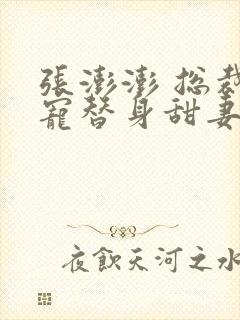 張澎澎 總裁
寵替身甜妻
夜飲天河之水